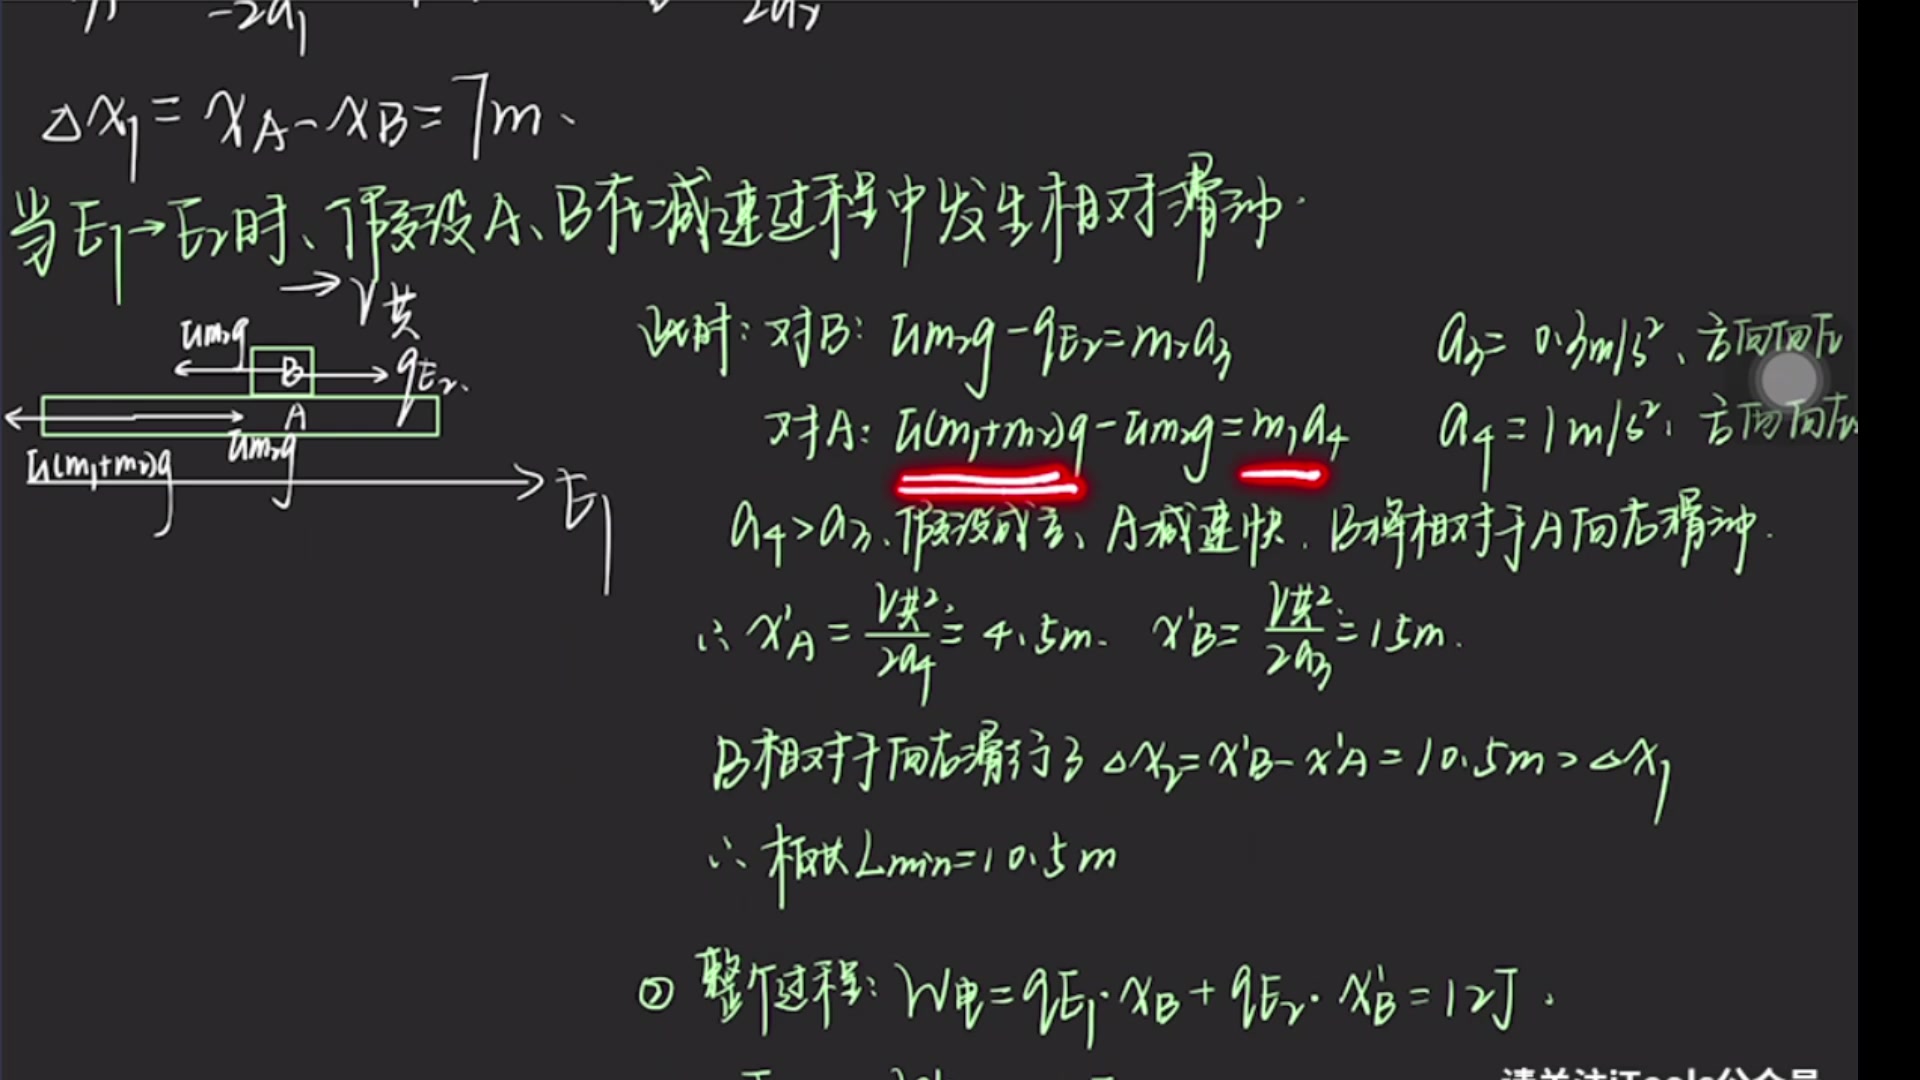 -2a₁
Δx₁ = x_A - x_B = 7m.
当E₁→E₂时、假设A、B在减速过程中发生相对滑动.
→ V共
μm₂g B qE₂
A
μ(m₁+m₂)g μm₂g
E₁
此时: 对B: μm₂g - qE₂ = m₂a₃ a₃ = 0.3m/s²、方向向左
对A: μ(m₁+m₂)g - μm₂g = m₁a₄ a₄ = 1m/s²、方向向左
a₄ > a₃、假设成立、A减速快. B将相对于A向右滑动.
∴ x'_A = V共²/2a₄ = 4.5m. x'_B = V共²/2a₃ = 15m.
B相对于向右滑行了 Δx₂ = x'_B - x'_A = 10.5m > Δx₁
∴ 板长Lmin = 10.5m
② 整个过程: W电 = qE₁·x_B + qE₂·x'_B = 12J.
请关注iTools公众号